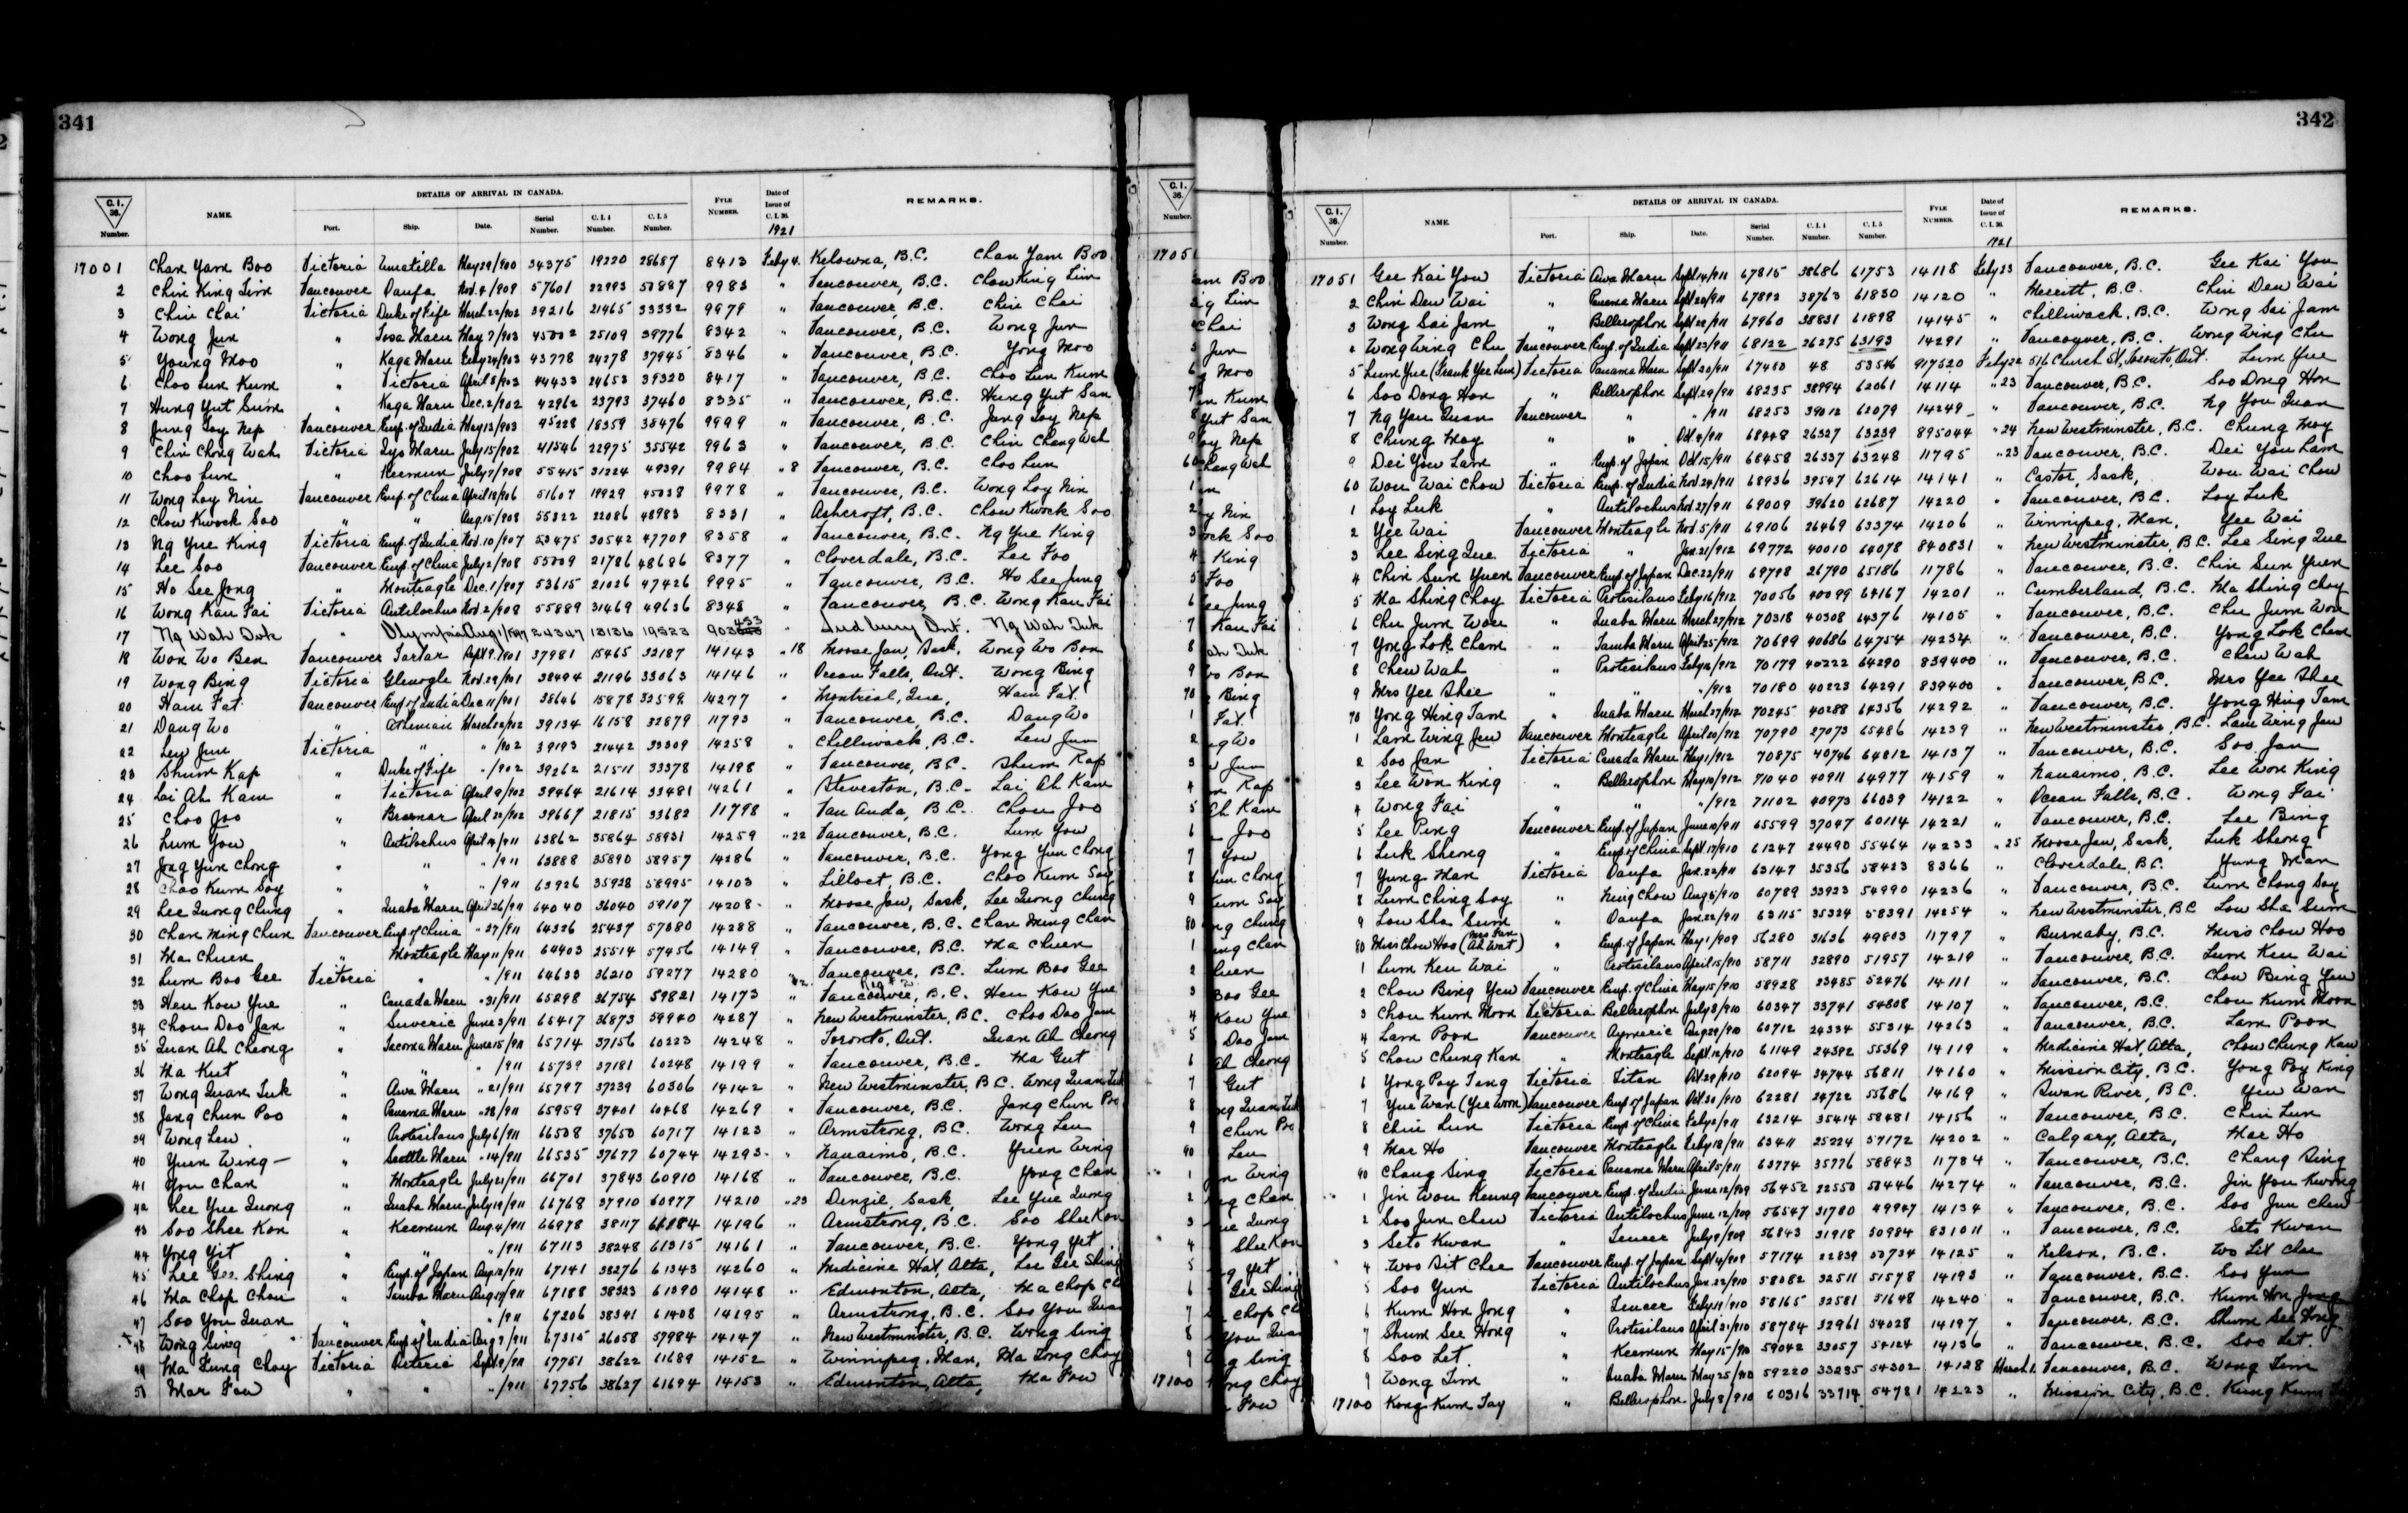 341
C. I. 36. Number. NAME. DETAILS OF ARRIVAL IN CANADA. Port. Ship. Date. Serial Number. C. I. 4 Number. C. I. 5 Number. FYLE NUMBER. Date of Issue of C. I. 36. 1921 REMARKS.
17001 Chan Yam Boo Victoria Umatilla May 29/900 34375 19220 28687 8413 Feby 4. Kelowna, B.C. Chan Yam Boo
2 Chin King Lim Vancouver Oanfa Nov. 4/909 57601 22993 50887 9983 " Vancouver, B.C. Chow King Lin
3 Chin Chai Victoria Duke of Fife March 22/902 39216 21465 33332 9979 " Vancouver, B.C. Chin Chai
4 Wong Jun " Tosa Maru May 7/903 45002 25109 39776 8342 " Vancouver, B.C. Wong Jun
5 Young Moo " Kaga Maru Feby 24/903 43778 24278 37945 8346 " Vancouver, B.C. Yong Moo
6 Choo Lun Kum " Victoria April 8/903 44433 24653 39320 8417 " Vancouver, B.C. Choo Lun Kum
7 Hung Yut Sun " Kaga Maru Dec. 2/902 42962 23793 37460 8335 " Vancouver, B.C. Hung Yut San
8 Jung Loy Nep Vancouver Emp. of India May 13/903 45228 18359 38476 9999 " Vancouver, B.C. Jang Loy Nep
9 Chin Chong Wah Victoria Iyo Maru July 15/902 41546 22975 35542 9963 " Vancouver, B.C. Chin Chang Wah
10 Choo Lun " Keemun July 7/908 55415 31224 49391 9984 " 8 Vancouver, B.C. Choo Lun
11 Wong Loy Nin Vancouver Emp. of China April 18/906 51607 19929 45038 9978 " Vancouver, B.C. Wong Loy Nin
12 Chow Kwock Soo " " Aug. 15/908 55322 22086 48983 8331 " Ashcroft, B.C. Chow Kwock Soo
13 Ng Yue King Victoria Emp. of India Nov. 10/907 53475 30542 47709 8358 " Vancouver, B.C. Ng Yue King
14 Lee Soo Vancouver Emp. of China July 2/908 55009 21786 48686 8377 " Cloverdale, B.C. Lee Foo
15 Ho See Jong " Monteagle Dec. 1/907 53615 21026 47426 9995 " Vancouver, B.C. Ho See Jung
16 Wong Kau Fai Victoria Antilochus Nov. 2/908 55889 31469 49636 8348 " Vancouver, B.C. Wong Kau Fai
17 Ng Wah Duk " Olympia Aug 1/897 24347 13136 19523 903 433 " Sudbury Ont. Ng Wah Duk
18 Won Wo Ben Vancouver Tartar Sept 9/901 37981 15465 32187 14143 " 18 Moose Jaw, Sask. Wong Wo Bon
19 Wong Bing Victoria Glenogle Nov. 29/901 38494 21196 33063 14146 " Ocean Falls, Ont. Wong Bing
20 Ham Fat Vancouver Emp. of India Dec 11/901 38646 15878 32599 14277 " Montreal, Que, Ham Fat
21 Dang Wo " Athenian March 22/902 39134 16158 32879 11793 " Vancouver, B.C. Dang Wo
22 Lew Jun Victoria " " /902 39193 21442 33309 14258 " Chilliwack, B.C. Lew Jun
23 Shum Kap " Duke of Fife " /902 39262 21511 33378 14198 " Vancouver, B.C. Shum Kap
24 Lai Ah Kam " Victoria April 9/902 39464 21614 33481 14261 " Steveston, B.C. Lai Ah Kam
25 Choo Joo " Braemar April 22/902 39667 21815 33682 11798 " Van Anda, B.C. Chou Joo
26 Lum You " Antilochus April 14/911 63862 35864 58931 14259 " 22 Vancouver, B.C. Lum You
27 Jong Yun Chong " " " /911 63888 35890 58957 14286 " Vancouver, B.C. Yong Yun Chong
28 Choo Kum Soy " " " /911 63926 35928 58995 14103 " Lilloet, B.C. Choo Kum Soy
29 Lee Quong Chung " Inaba Maru April 26/911 64040 36040 59107 14208 " Moose Jaw, Sask, Lee Quong Chung
30 Chan Ming Chun Vancouver Emp of China " 27/911 64326 25437 57380 14288 " Vancouver, B.C. Chan Ming Chan
31 Ma Chuen " Monteagle May 11/911 64403 25514 57456 14149 " Vancouver, B.C. Ma Chuen
32 Lum Boo Gee Victoria " " /911 64633 36210 59277 14280 " Vancouver, B.C. Lum Boo Gee
33 Hen Kow Yue " Canada Maru " 31/911 65298 36754 59821 14173 " Vancouver, B.C. Hen Kow Yue
34 Chou Doo Jan " Suveric June 3/911 65417 36873 59940 14287 " New Westminster, B.C. Choo Doo Jam
35 Quan Ah Cheong " Tacoma Maru June 15/911 65714 37156 60223 14248 " Toronto, Ont. Quan Ah Cheong
36 Ma Kut " " " /911 65739 37181 60248 14199 " Vancouver, B.C. Ma Gut
37 Wong Quan Tuk " Awa Maru " 21/911 65797 37239 60306 14142 " New Westminster, B.C. Wong Quan Tuk
38 Jang Chun Poo " Panama Maru " 28/911 65959 37401 60468 14269 " Vancouver, B.C. Jang Chun
39 Wong Lew " Protesilaus July 6/911 66508 37650 60717 14123 " Armstrong, B.C. Wong Leu
40 Yuen Wing " Seattle Maru " 14/911 66535 37677 60744 14293 " Nanaimo, B.C. Yuen Wing
41 You Chan " Monteagle July 21/911 66701 37843 60910 14168 " Vancouver, B.C. Yong Chan
42 Lee Yue Quong " Inaba Maru July 19/911 66768 37910 60977 14210 " 23 Denzil, Sask, Lee Yue Quong
43 Soo Shee Kon " Keemun Aug. 4/911 66978 38117 61184 14196 " Armstrong, B.C. Soo Shee Kon
44 Yong Yit " " " /911 67113 38248 61315 14161 " Vancouver, B.C. Yong Yet
45 Lee Gee Shing " Emp. of Japan Aug 12/911 67141 38276 61343 14260 " Medicine Hat, Alta, Lee Gee Shing
46 Ma Chop Chou " Tamba Maru Aug 17/911 67188 38323 61390 14148 " Edmonton, Alta, Ma Chop
47 Soo You Quan " " " /911 67206 38341 61408 14195 " Armstrong, B.C. Soo You
48 Wong Sing Vancouver Emp of India Aug 9/911 67315 26058 57984 14147 " New Westminster, B.C. Wong Sing
49 Ma Lung Choy Victoria Asteric Sept 9/911 67751 38622 61689 14152 " Winnipeg, Man, Ma Long Choy
50 Mar Fow " " " /911 67756 38627 61694 14153 " Edmonton, Alta, Ma Fow
C. I. 36. Number.
17051
17100
342
C. I. 36. Number. NAME. DETAILS OF ARRIVAL IN CANADA. Port. Ship. Date. Serial Number. C. I. 4 Number. C. I. 5 Number. FYLE NUMBER. Date of Issue of C. I. 36. 1921 REMARKS.
17051 Gee Kai You Victoria Awa Maru Sept 14/911 67815 38686 61753 14118 Feby 23 Vancouver, B.C. Gee Kai You
2 Chin Dew Wai " Panama Maru Sept 20/911 67892 38763 61830 14120 " Merritt, B.C. Chin Dew Wai
3 Wong Sai Jam " Bellerophon Sept 28/911 67960 38831 61898 14145 " Chilliwack, B.C. Wong Sai Jam
4 Wong Wing Chu Vancouver Emp. of India Sept 23/911 68122 26275 63193 14291 " Vancouver, B.C. Wong Wing Chu
5 Lum Yue (Frank Yee Lum) Victoria Panama Maru Sept 20/911 67480 48 53546 917520 Feby 22 516 Church St, Toronto, Ont. Lum Yue
6 Soo Dong Hon " Bellerophon Sept 29/911 68235 38994 62061 14114 " 23 Vancouver, B.C. Soo Dong Hon
7 Ng You Quan Vancouver " " /911 68253 39012 62079 14249 " Vancouver, B.C. Ng You Quan
8 Chung Moy " " Oct. 4/911 68448 26327 63239 895044 " 24 New Westminster, B.C. Chung Moy
9 Dei You Lam " Emp. of Japan Oct 15/911 68458 26337 63248 11795 " 23 Vancouver, B.C. Dei You Lam
60 Wou Wai Chow Victoria Emp. of India Nov 24/911 68936 39547 62614 14141 " Castor, Sask, Wou Wai Chow
1 Loy Luk " Antilochus Nov 27/911 69009 39620 62687 14220 " Vancouver, B.C. Loy Luk
2 Yee Wai Vancouver Monteagle Nov. 5/911 69106 26469 63374 14206 " Winnipeg, Man, Yee Wai
3 Lee Sing Que Victoria " Jan. 21/912 69772 40010 64078 840831 " New Westminster, B.C. Lee Sing Que
4 Chin Sun Yuen Vancouver Emp. of Japan Dec. 22/911 69798 26790 65186 11786 " Vancouver, B.C. Chin Sun Yuen
5 Ma Shing Choy Victoria Protesilaus Feby 16/912 70056 40099 64167 14201 " Cumberland, B.C. Ma Shing Choy
6 Chu Jum Wou " Inaba Maru March 27/912 70318 40308 64376 14105 " Vancouver, B.C. Chu Jum Wou
7 Yong Lok Cham " Tamba Maru April 25/912 70699 40686 64754 14234 " Vancouver, B.C. Yong Lok Cham
8 Chew Wah " Protesilaus Feby 16/912 70179 40222 64290 839400 " Vancouver, B.C. Chew Wah
9 Mrs Yee Shee " " " /912 70180 40223 64291 839400 " Vancouver, B.C. Mrs Yee Shee
70 Yong Hing Tam " Inaba Maru March 27/912 70245 40288 64356 14292 " Vancouver, B.C. Yong Hing Tam
1 Lam Wing Jew Vancouver Monteagle April 20/912 70790 27073 65486 14239 " New Westminster, B.C. Lam Wing Jew
2 Soo Jan Victoria Canada Maru May 1/912 70875 40746 64812 14137 " Vancouver, B.C. Soo Jan
3 Lee Won King " Bellerophon May 10/912 71040 40911 64977 14159 " Nanaimo, B.C. Lee Won King
4 Wong Fai " " " /912 71102 40973 66039 14122 " Ocean Falls, B.C. Wong Fai
5 Lee Ping Vancouver Emp. of Japan June 10/911 65599 37047 60114 14221 " Vancouver, B.C. Lee Bing
6 Luk Sheong " Emp of China Sept. 17/910 61247 24490 55464 14233 " 25 Moose Jaw, Sask, Luk Sheong
7 Yung Man Victoria Oanfa Jan. 22/911 63147 35356 58423 8366 " Cloverdale, B.C. Yung Man
8 Lum Ching Soy " Ning Chow Aug 5/910 60789 33923 54990 14236 " Vancouver, B.C. Lum Chong Soy
9 Lou Sha Sum " Oanfa Jan. 22/911 63115 35324 58391 14254 " New Westminster, B.C. Lou Sha Sum
80 Miss Chow Hoo (Mrs Fan Ah Wat) " Emp. of Japan May 1/909 56280 31636 49803 11797 " Burnaby, B.C. Miss Chow Hoo
1 Lum Ken Wai " Protesilaus April 15/910 58711 32890 51957 14219 " Vancouver, B.C. Lum Ken Wai
2 Chow Bing Yew Vancouver Emp. of China May 15/910 58928 23485 52476 14111 " Vancouver, B.C. Chow Bing Yew
3 Chou Kum Moon Victoria Bellerophon July 8/910 60347 33741 54808 14107 " Vancouver, B.C. Chou Kum Moon
4 Lam Poon Vancouver Aymeric Aug 29/910 60712 24334 55314 14263 " Vancouver, B.C. Lam Poon
5 Chow Chung Kan " Monteagle Sept. 12/910 61149 24392 55369 14119 " Medicine Hat, Alta, Chow Chung Kan
6 Yong Poy Tang Victoria Titan Oct 29/910 62094 34744 56811 14160 " Mission City, B.C. Yong Poy King
7 Yue Wan (Yee Woon) Vancouver Emp. of Japan Oct 30/910 62281 24722 55686 14169 " Swan River, B.C. Yue Wan
8 Chin Lun Victoria Emp of China Feby 2/911 63214 35414 58481 14156 " Vancouver, B.C. Chin Lun
9 Mar Ho Vancouver Monteagle Feby 18/911 63411 25224 57172 14202 " Calgary, Alta, Mar Ho
90 Chang Sing Victoria Panama Maru April 5/911 63774 35776 58843 11784 " Vancouver, B.C. Chang Sing
1 Jin Wou Keung Vancouver Emp. of India June 12/909 56452 22550 50446 14274 " Vancouver, B.C. Jin You Kwong
2 Soo Jun Chew Victoria Antilochus June 12/909 56547 31780 49947 14134 " Vancouver, B.C. Soo Jun Chew
3 Seto Kwan " Lencer July 9/909 56843 31918 50984 831011 " Vancouver, B.C. Seto Kwan
4 Woo Dit Chee Vancouver Emp. of Japan Sept 4/909 57174 22839 50734 14125 " Nelson, B.C. Wo Lit Chee
5 Soo Yun Victoria Antilochus Jan. 22/910 58082 32511 51578 14193 " Vancouver, B.C. Soo Yun
6 Kum Hon Jong " Lencer Feby 19/910 58165 32581 51648 14240 " Vancouver, B.C. Kum Hon Jong
7 Shum See Hong " Protesilaus April 21/910 58784 32961 54028 14197 " Vancouver, B.C. Shum See Hong
8 Soo Let " Keemun May 15/910 59042 33057 54124 14136 " Vancouver, B.C. Soo Let
9 Wong Tim " Inaba Maru May 25/910 59220 33235 54302 14128 March 1. Vancouver, B.C. Wong Tim
17100 Kong Kum Tay " Bellerophon July 8/910 60316 33714 54781 14223 " Mission City, B.C. Kung Kum